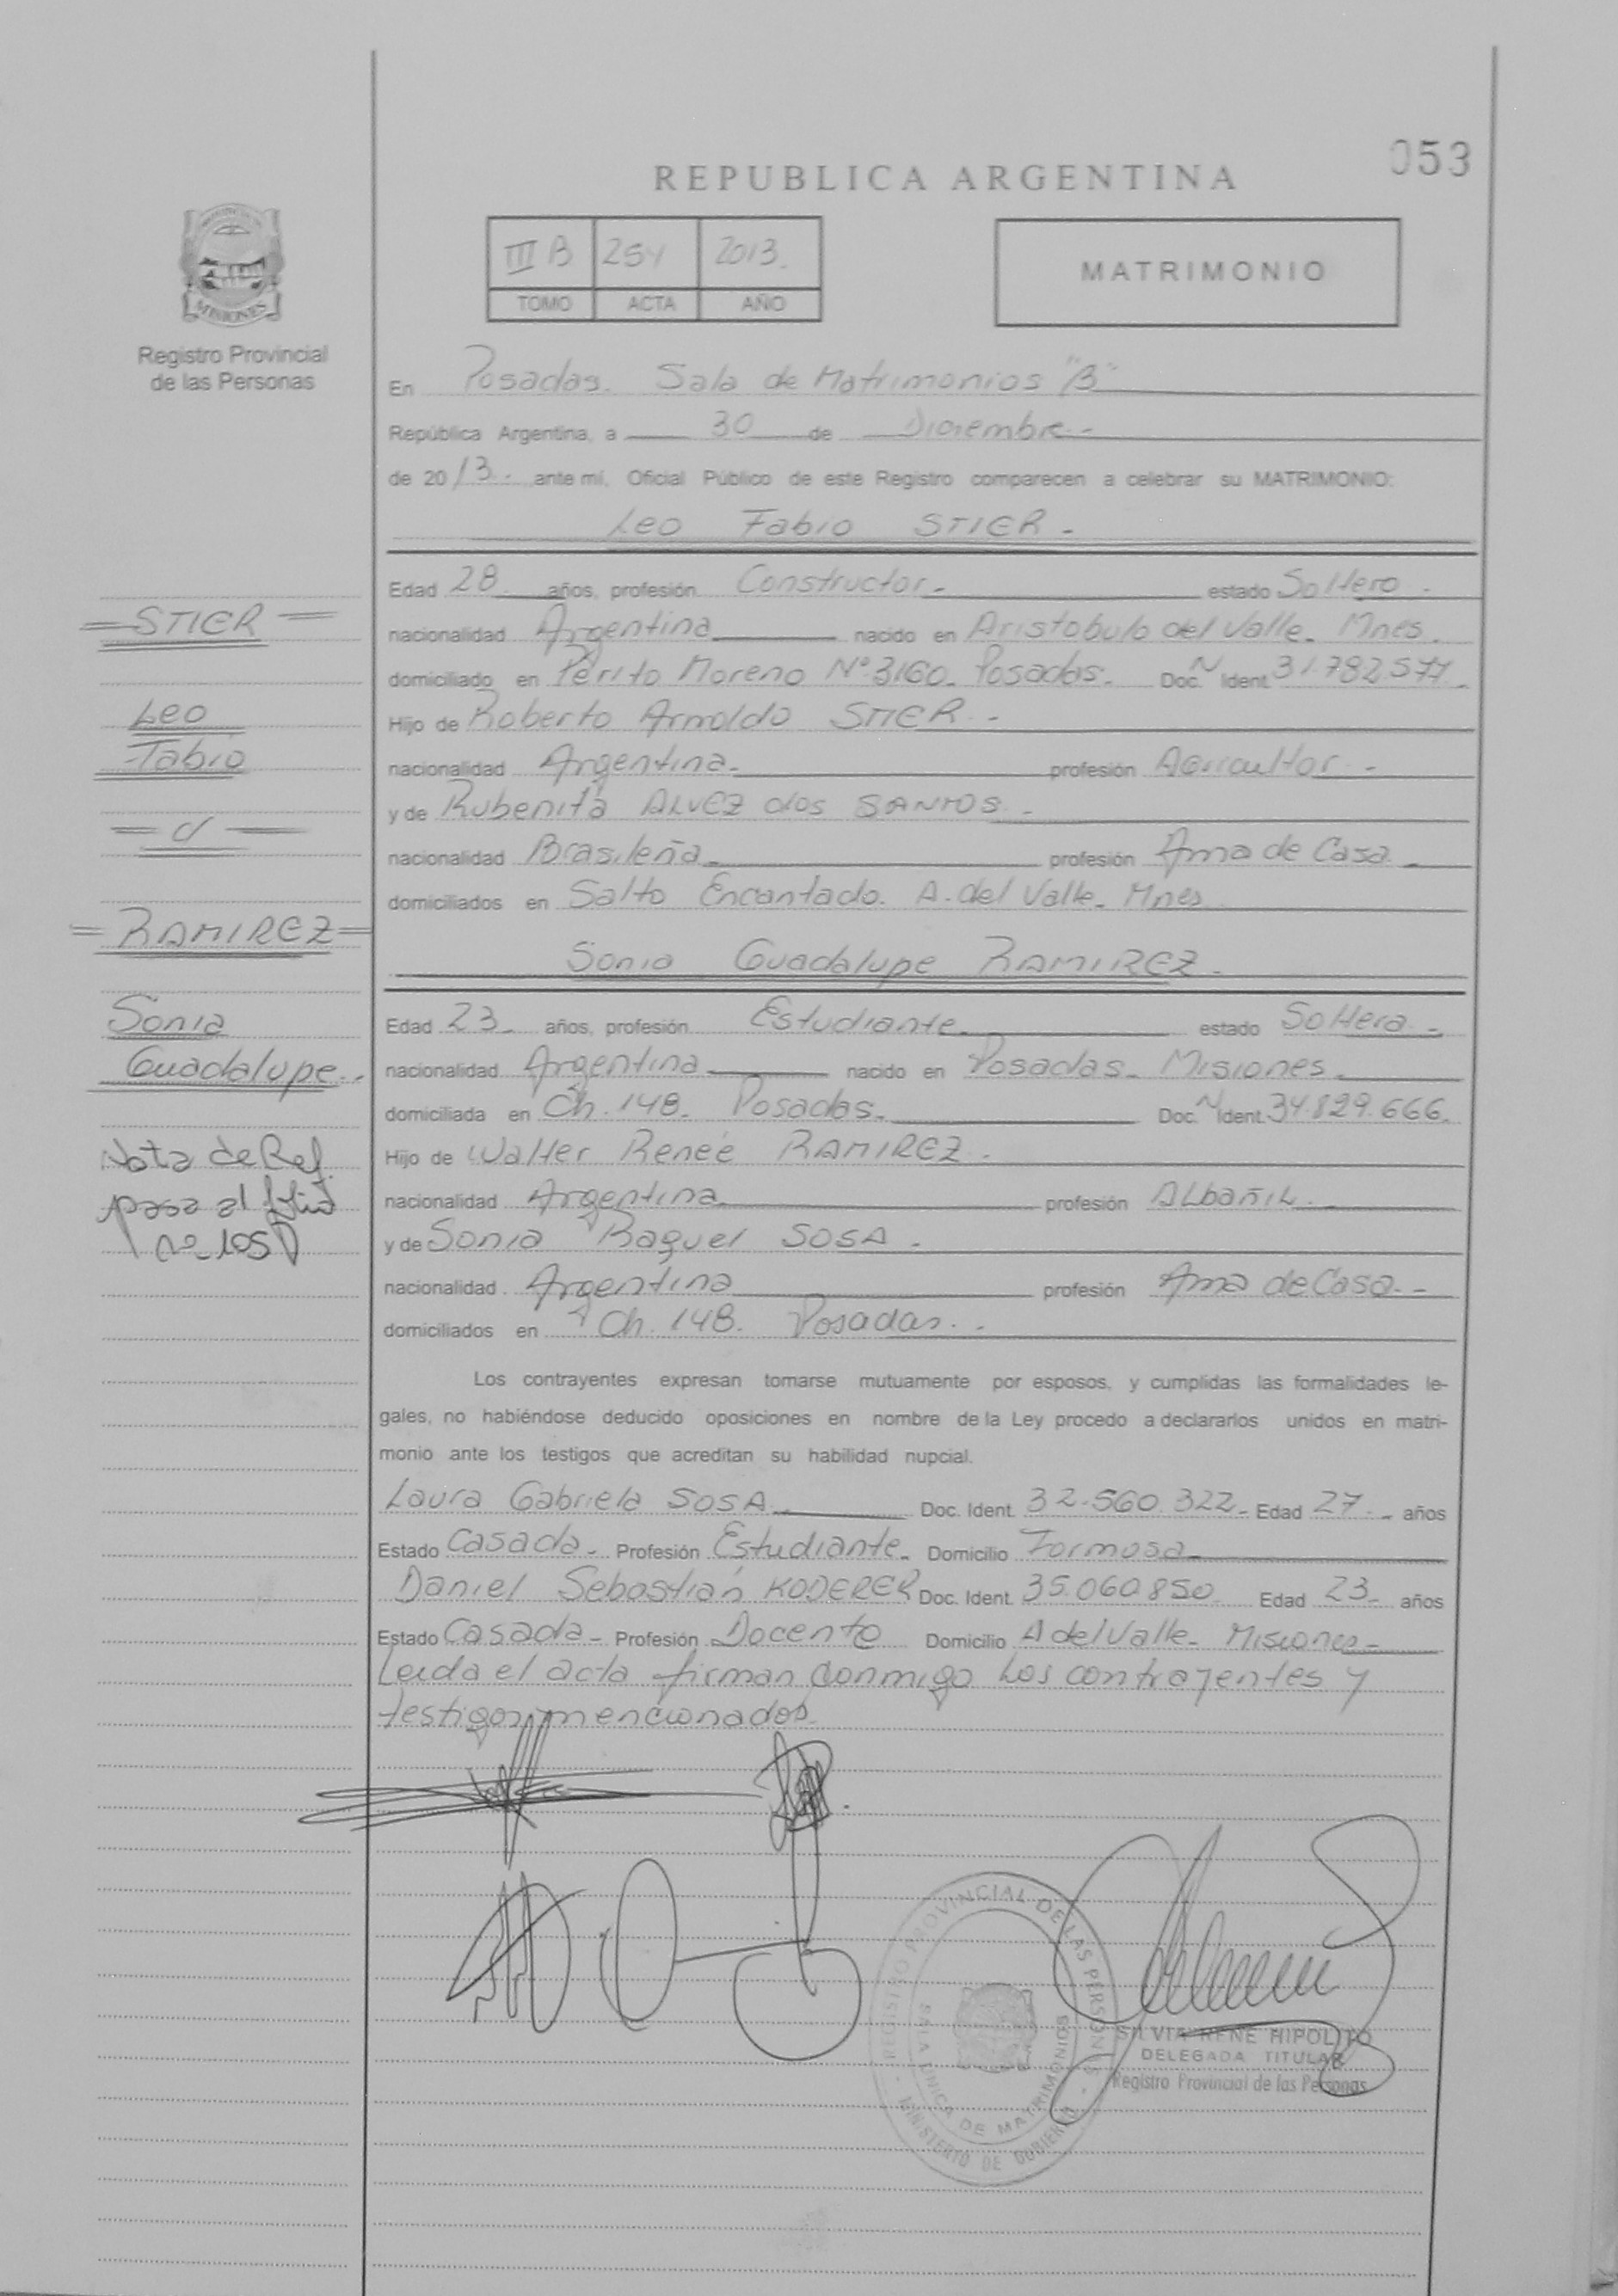 053
REPUBLICA ARGENTINA
III B 254 2013.
TOMO ACTA AÑO
MATRIMONIO
MISIONES
Registro Provincial
de las Personas
En Posadas. Sala de Matrimonios "B"
República Argentina, a 30 de Diciembre.-
de 2013.- ante mí, Oficial Público de este Registro comparecen a celebrar su MATRIMONIO:
Leo Fabio STIER.-
Edad 28 años, profesión Constructor.- estado Soltero.-
nacionalidad Argentina nacido en Aristobulo del Valle. Mnes.
domiciliado en Perito Moreno Nº 3160. Posadas. Doc. N Ident. 31.782.577.
Hijo de Roberto Arnoldo STIER.-
nacionalidad Argentina.- profesión Agricultor.-
y de Rubenita ALVEZ dos SANTOS.-
nacionalidad Brasileña.- profesión Ama de Casa.-
domiciliados en Salto Encantado. A. del Valle. Mnes
Sonia Guadalupe RAMIREZ.-
Edad 23.- años, profesión Estudiante. estado Soltera.-
nacionalidad Argentina nacido en Posadas. Misiones.
domiciliada en Ch. 148. Posadas. Doc. N Ident. 34.829.666.
Hijo de Walter Renée RAMIREZ.-
nacionalidad Argentina profesión ALbañiL.-
y de Sonia Raquel SOSA.-
nacionalidad Argentina profesión Ama de Casa.-
domiciliados en Ch. 148. Posadas.-
STIER
Leo
Fabio
c/
RAMIREZ
Sonia
Guadalupe.-
Nota de Ref.
pasa al folio
nº 105
Los contrayentes expresan tomarse mutuamente por esposos, y cumplidas las formalidades le-
gales, no habiéndose deducido oposiciones en nombre de la Ley procedo a declararlos unidos en matri-
monio ante los testigos que acreditan su habilidad nupcial.
Laura Gabriela SOSA Doc. Ident. 32.560.322.- Edad 27.- años
Estado Casada.- Profesión Estudiante.- Domicilio Formosa
Daniel Sebastián KODERER Doc. Ident. 35.060.850 Edad 23.- años
Estado Casada.- Profesión Docente Domicilio A del Valle. Misiones.-
Leida el acta firman conmigo los contrayentes y
testigos mencionados.
REGISTRO PROVINCIAL DE LAS PERSONAS
SALA UNICA DE MATRIMONIOS
MINISTERIO DE GOBIERNO
SILVIA RENE HIPOLITO
DELEGADA TITULAR
Registro Provincial de las Personas